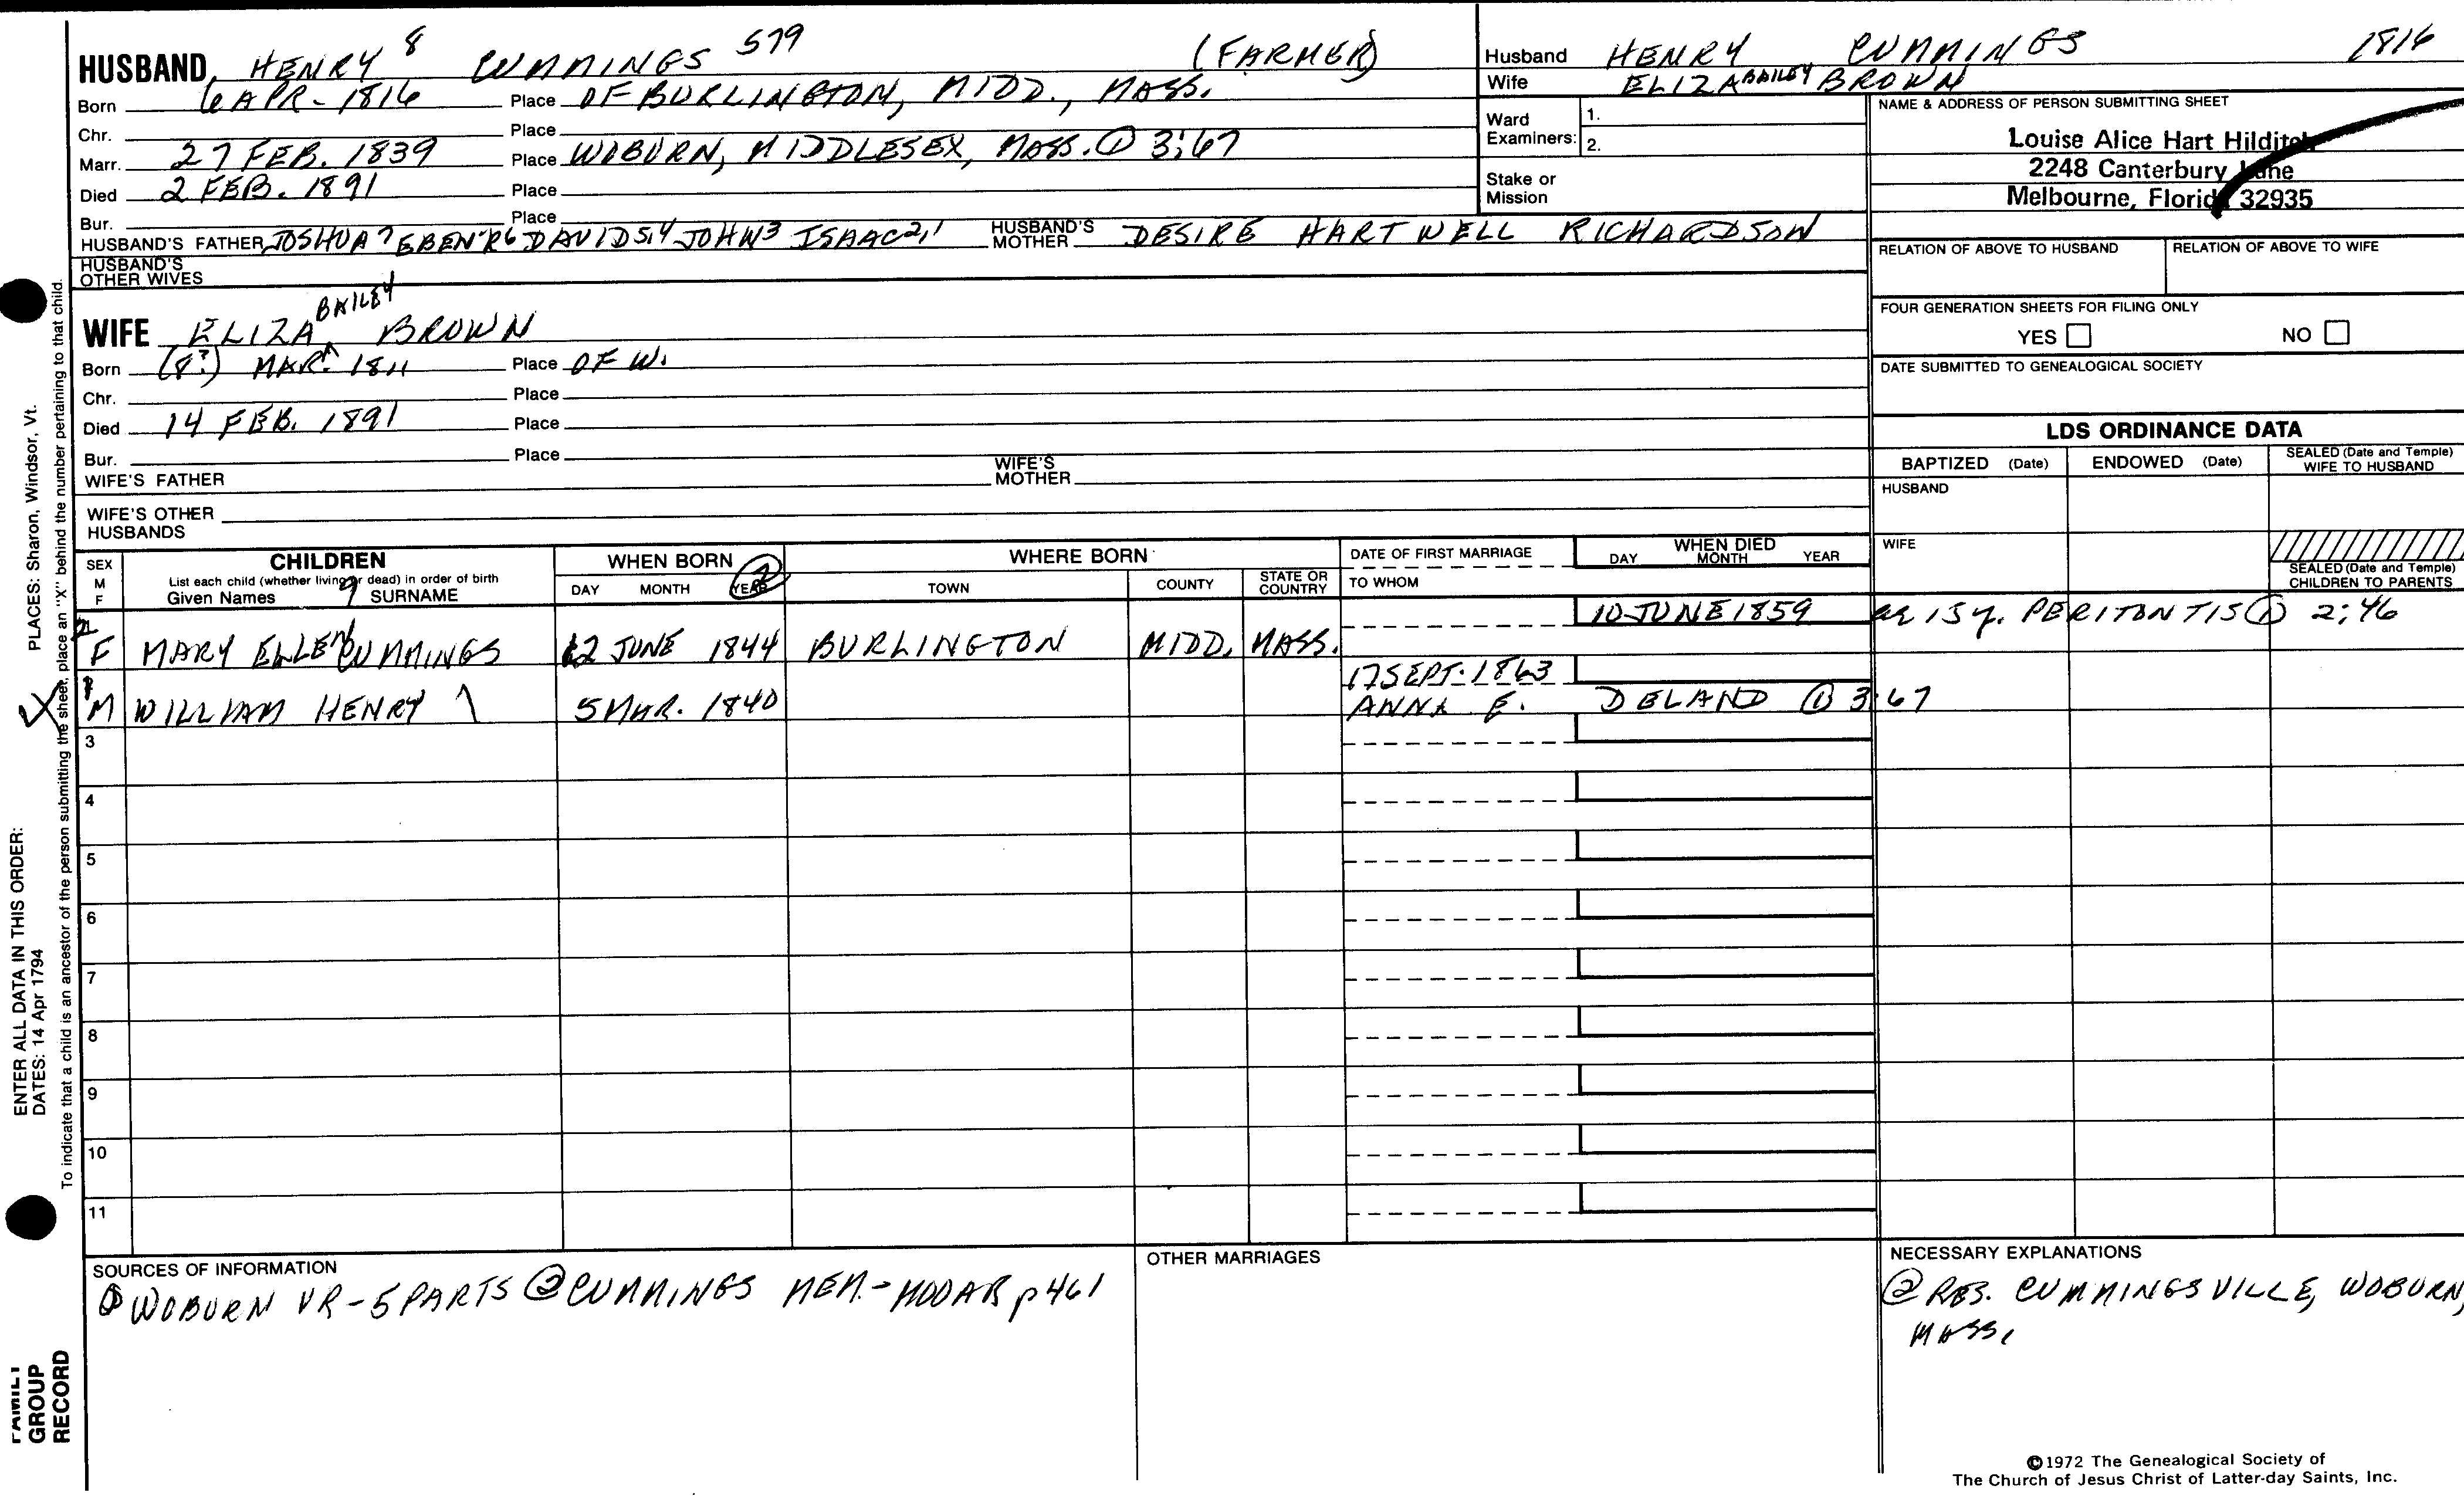 HUSBAND HENRY 8 CUMMINGS 579 (FARMER)
Born 6 APR - 1816 Place OF BURLINGTON, MIDD., MASS.
Chr. Place
Marr. 27 FEB. 1839 Place WOBURN, MIDDLESEX, MASS. ① 3:67
Died 2 FEB. 1891 Place
Bur. Place
HUSBAND'S FATHER JOSHUA 7 EBEN'R 6 DAVID 5,4 JOHN 3 ISAAC 2,1 HUSBAND'S MOTHER DESIRE HARTWELL RICHARDSON
HUSBAND'S OTHER WIVES
BAILEY
WIFE ELIZA ^ BROWN
Born (8?) MAR. 1811 Place OF W.
Chr. Place
Died 14 FEB. 1891 Place
Bur. Place
WIFE'S FATHER WIFE'S MOTHER
WIFE'S OTHER HUSBANDS
Husband HENRY CUMMINGS 1816
Wife ELIZA BAILEY BROWN
Ward Examiners: 1.
2.
Stake or Mission
NAME & ADDRESS OF PERSON SUBMITTING SHEET
Louise Alice Hart Hilditch
2248 Canterbury Lane
Melbourne, Florida 32935
RELATION OF ABOVE TO HUSBAND RELATION OF ABOVE TO WIFE
FOUR GENERATION SHEETS FOR FILING ONLY
YES NO
DATE SUBMITTED TO GENEALOGICAL SOCIETY
LDS ORDINANCE DATA
BAPTIZED (Date) ENDOWED (Date) SEALED (Date and Temple) WIFE TO HUSBAND
HUSBAND
WIFE
SEALED (Date and Temple) CHILDREN TO PARENTS
SEX M F CHILDREN WHEN BORN ② WHERE BORN DATE OF FIRST MARRIAGE WHEN DIED
List each child (whether living or dead) in order of birth
Given Names 9 SURNAME DAY MONTH YEAR TOWN COUNTY STATE OR COUNTRY TO WHOM DAY MONTH YEAR
10 JUNE 1859 ae 15 y. PERITONTIS ① 2:46
2 F MARY ELLEN CUMMINGS 12 JUNE 1844 BURLINGTON MIDD. MASS.
17 SEPT. 1863
1 M WILLIAM HENRY 5 MAR. 1840 ANNA E. DELAND ① 3:67
3
4
5
6
7
8
9
10
11
SOURCES OF INFORMATION
① WOBURN VR - 5 PARTS ② CUMMINGS MEM. - MOOAR p 461
OTHER MARRIAGES
NECESSARY EXPLANATIONS
② RES. CUMMINGSVILLE, WOBURN,
MASS.
©1972 The Genealogical Society of
The Church of Jesus Christ of Latter-day Saints, Inc.
To indicate that a child is an ancestor of the person submitting the sheet, place an "X" behind the number pertaining to that child.
ENTER ALL DATA IN THIS ORDER:
DATES: 14 Apr 1794 PLACES: Sharon, Windsor, Vt.
FAMILY
GROUP
RECORD